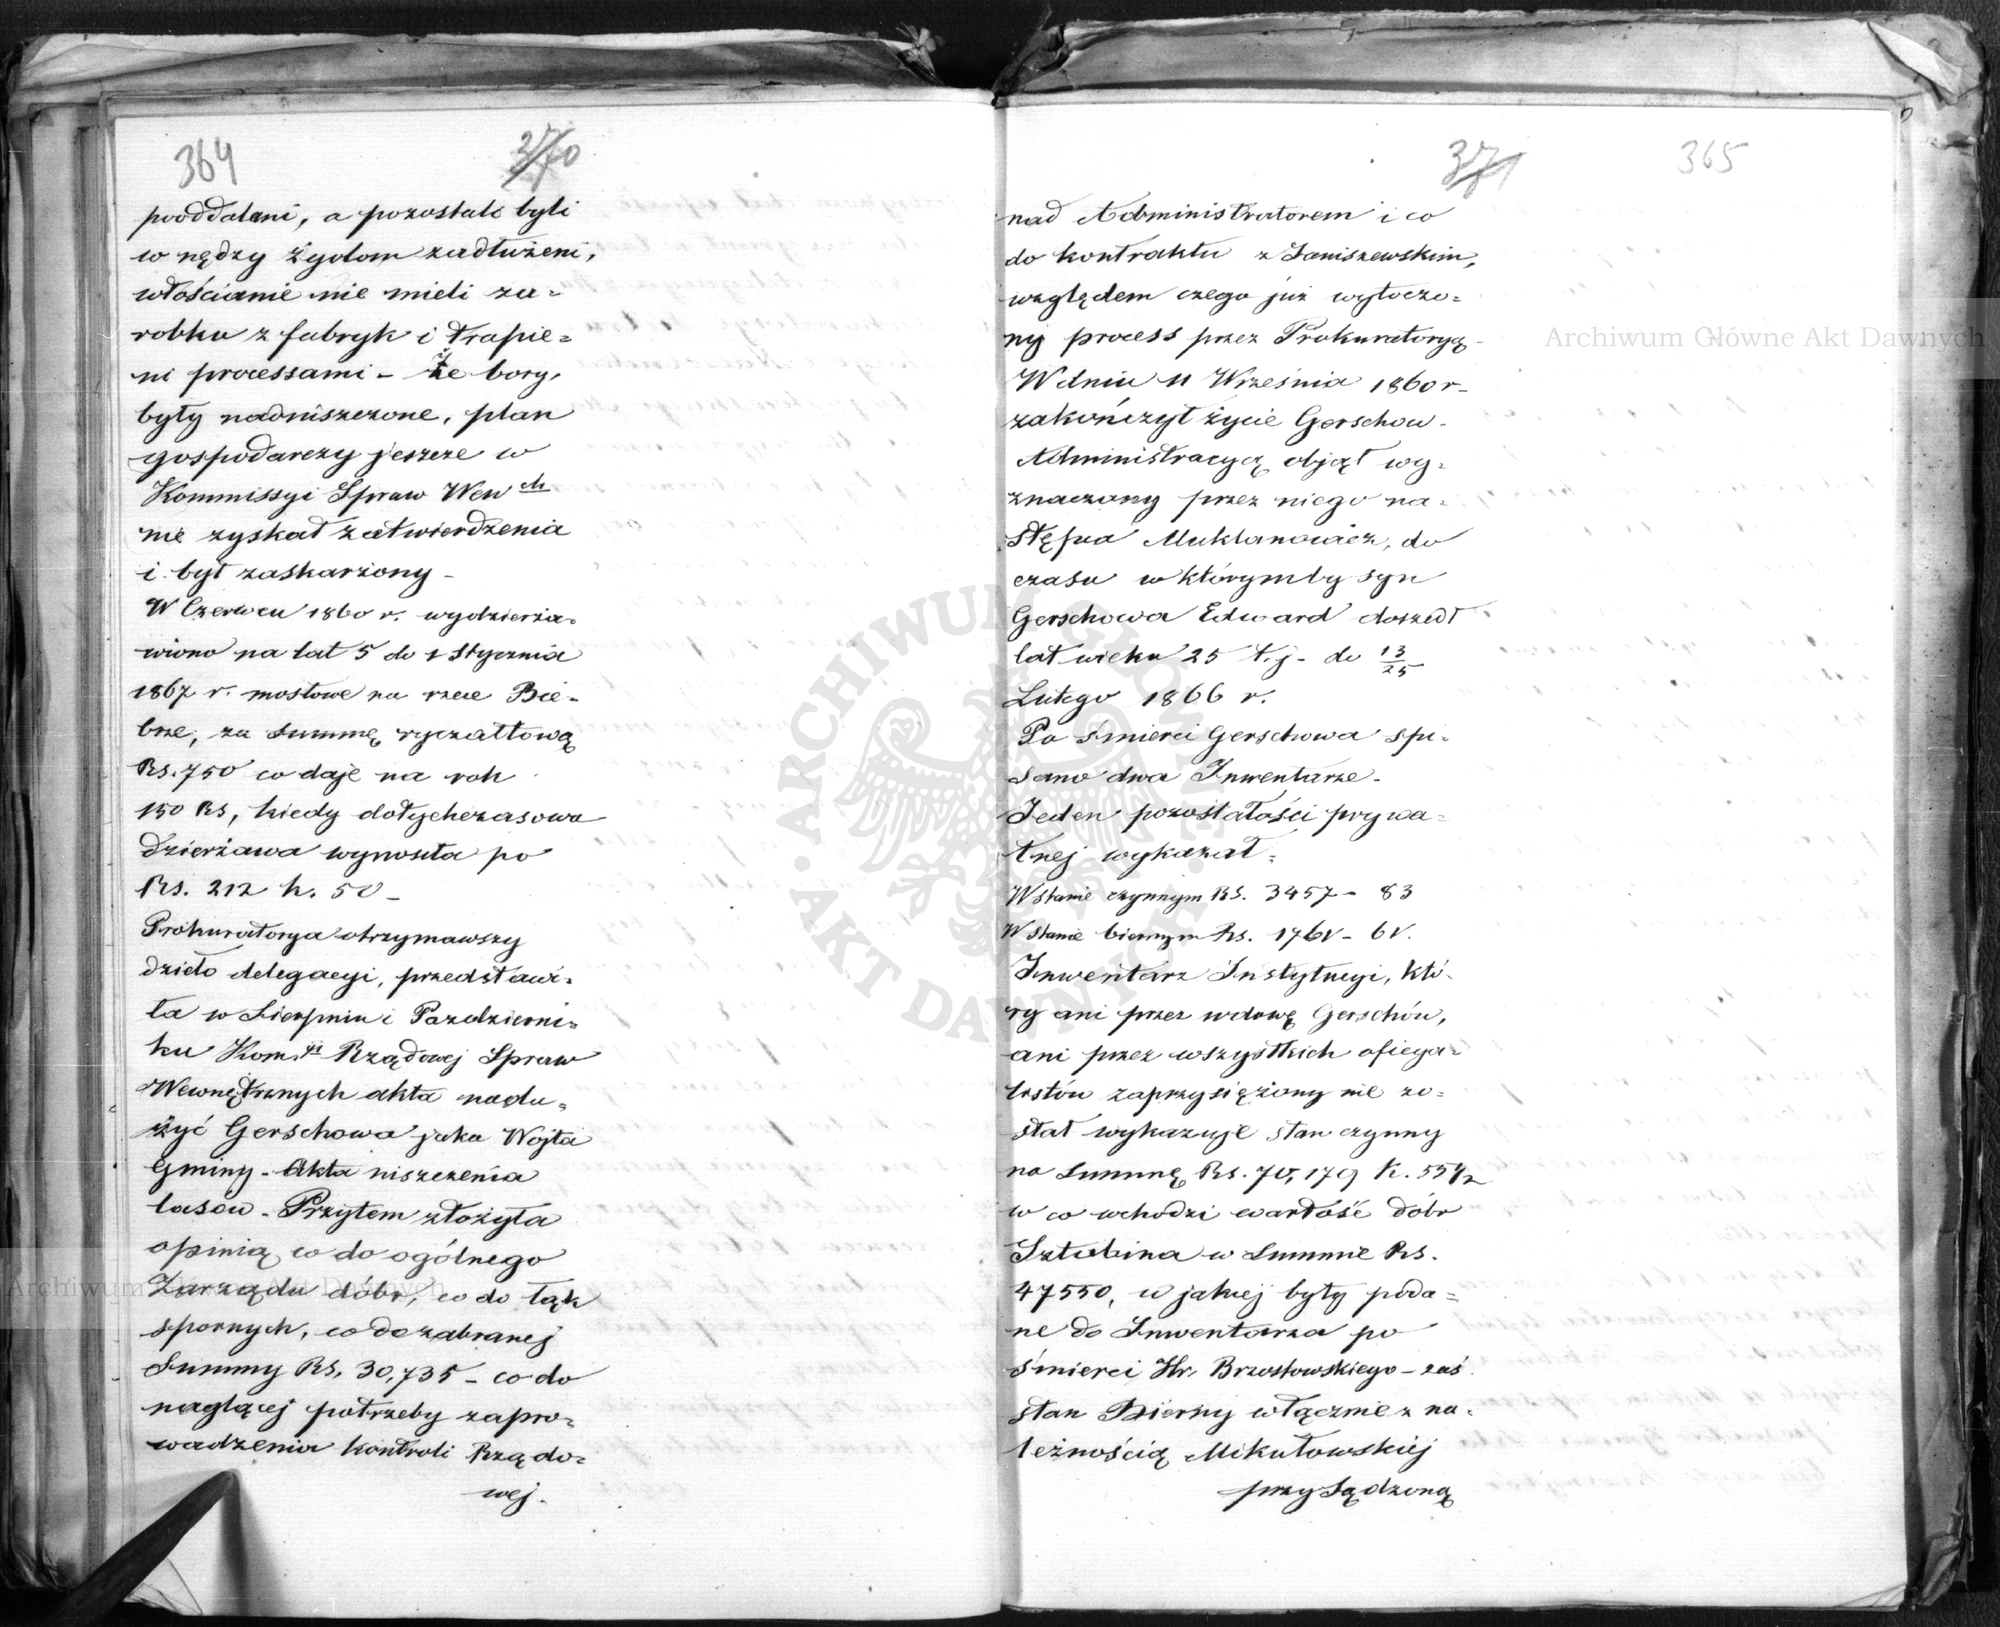 364
370
pooddalani, a pozostali byli
w nędzy Żydom zadłużeni,
włościanie nie mieli za=
robku z fabryk i trapie=
ni processami - że bory,
były nadniszczone, plan
gospodarczy jeszcze w
Kommissyi Spraw Wewch
nie zyskał zatwierdzenia
i był zaskarżony -
W Czerwcu 1860 r. wydzierża=
wiono na lat 5 do 1 Stycznia
1867 r. mostowe na rzece Bie=
brze, za summę ryczałtową
Rs. 750 co daje na rok
150 Rs, kiedy dotychczasowa
dzierżawa wynosiła po
Rs. 212 k. 50 -
Prokuratorya otrzymawszy
dzieło delegacyi, przedstawi=
ła w Sierpniu i Pazdzierni=
ku Kom. Rządowej Spraw
Wewnętrznych akta nadu=
żyć Gerschowa jako Wojta
Gminy - Akta niszczenia
lasów - Przytem złożyła
opinią co do ogólnego
Zarządu dóbr, co do łąk
spornych, co do zabranej
Summy Rs. 30,735 - co do
naglącej potrzeby zapro=
wadzenia kontroli Rządo=
wej.
371
365
nad Administratorem i co
do kontraktu z Janiszewskim,
względem czego już wytoczo=
ny process przez Prokuratoryą -
W dniu 11 Września 1860 r -
zakończył życie Gerschow -
Administracyą objął wy=
znaczony przez niego na=
stępca Muklanowicz, do
czasu w którymby syn
Gerschowa Edward doszedł
lat wieku 25 t. j. do 13/25
Lutego 1866 r.
Po śmierci Gerschowa spi=
sano dwa Inwentarze -
Jeden pozostałości prywa=
tnej wykazał =
W stanie czynnym Rs. 3457 - 83
W stanie biernym Rs. 1760 - 60.
Inwentarz Instytucyi, któ=
ry ani przez wdowę Gerschów,
ani przez wszystkich oficya=
listów zaprzysiężony nie zo=
stał wykazuje stan czynny
na Summę Rs. 70,179 K. 55 1/2
w co wchodzi wartość dóbr
Sztabina w Summie Rs.
47550, w jakiej były poda=
ne do Inwentarza po
śmierci Hr. Brzostowskiego - zaś
stan Bierny włącznie z na=
leżnością Mikułowskiej
przysądzoną
Archiwum Główne Akt Dawnych
Archiwum Główne Akt Dawnych
ARCHIWUM GŁÓWNE · AKT DAWNYCH ·